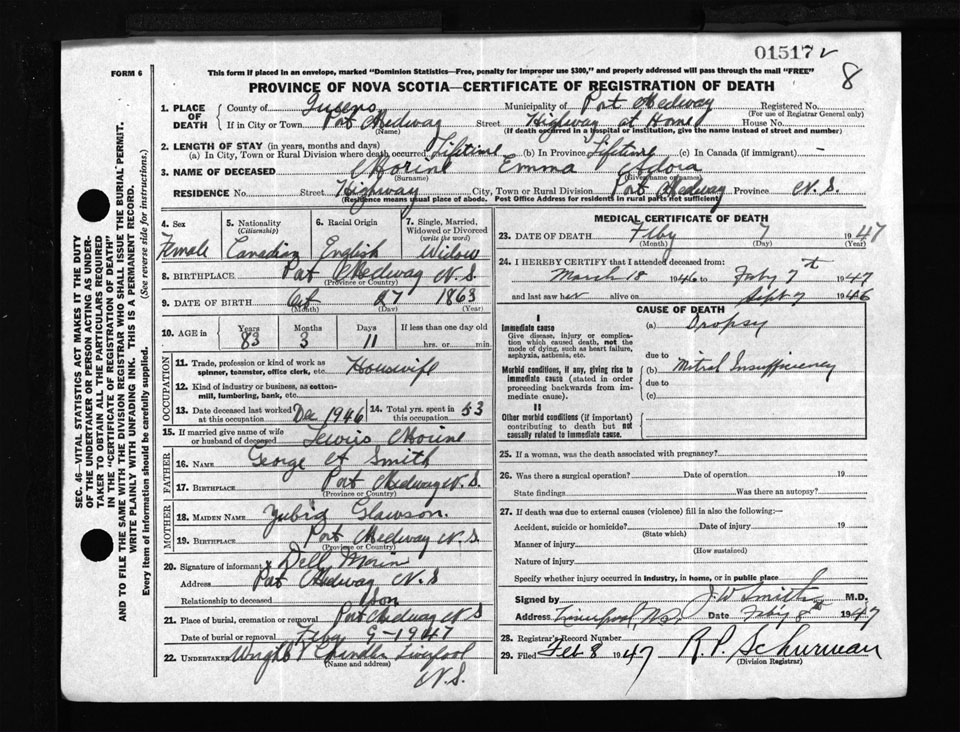 01517 v
8
FORM 6
This form if placed in an envelope, marked "Dominion Statistics—Free, penalty for improper use $300," and properly addressed will pass through the mail "FREE"
PROVINCE OF NOVA SCOTIA—CERTIFICATE OF REGISTRATION OF DEATH
SEC. 46—VITAL STATISTICS ACT MAKES IT THE DUTY
OF THE UNDERTAKER OR PERSON ACTING AS UNDER-
TAKER TO OBTAIN ALL THE PARTICULARS REQUIRED
IN THE "CERTIFICATE OF REGISTRATION OF DEATH"
AND TO FILE THE SAME WITH THE DIVISION REGISTRAR WHO SHALL ISSUE THE BURIAL PERMIT.
WRITE PLAINLY WITH UNFADING INK. THIS IS A PERMANENT RECORD.
Every item of information should be carefully supplied. (See reverse side for instructions.)
1. PLACE OF DEATH County of Queens Municipality of Port Medway Registered No.
(For use of Registrar General only)
If in City or Town Port Medway Street Highway at Home House No.
(Name) (If death occurred in a hospital or institution, give the name instead of street and number)
2. LENGTH OF STAY (in years, months and days)
(a) In City, Town or Rural Division where death occurred Lifetime (b) In Province Lifetime (c) In Canada (if immigrant) —
3. NAME OF DECEASED Morine Emma
(Surname) (Given name or names)
RESIDENCE No. Street Highway City, Town or Rural Division Port Medway Province N.S.
(Residence means usual place of abode. Post Office Address for residents in rural parts not sufficient)
4. Sex 5. Nationality (Citizenship) 6. Racial Origin 7. Single, Married, Widowed or Divorced (write the word)
Female Canadian English Widow
8. BIRTHPLACE Port Medway N.S.
(Province or Country)
9. DATE OF BIRTH Oct 27 1863
(Month) (Day) (Year)
10. AGE in Years Months Days If less than one day old
83 3 11 hrs. or min.
OCCUPATION
11. Trade, profession or kind of work as spinner, teamster, office clerk, etc. Housewife
12. Kind of industry or business, as cotton-mill, lumbering, bank, etc.
13. Date deceased last worked at this occupation Dec 1946 14. Total yrs. spent in this occupation 53
15. If married give name of wife or husband of deceased Morine
FATHER
16. NAME George A Smith
17. BIRTHPLACE Port Medway N.S.
(Province or Country)
MOTHER
18. MAIDEN NAME
19. BIRTHPLACE Port Medway N.S.
(Province or Country)
20. Signature of informant x Dell Morin
Address Port Medway N.S
Relationship to deceased Son
21. Place of burial, cremation or removal Port Medway N S
Date of burial or removal 9-1947
22. UNDERTAKER Wright & Chandler Liverpool
(Name and address)
N.S.
MEDICAL CERTIFICATE OF DEATH
23. DATE OF DEATH Feby 7 1947
(Month) (Day) (Year)
24. I HEREBY CERTIFY that I attended deceased from:
March 18 1946 to Feby 7th 1947
and last saw her alive on Sept 7 1946
CAUSE OF DEATH
I
Immediate cause (a) Dropsy
Give disease, injury or complication which caused death, not the mode of dying, such as heart failure, asphyxia, asthenia, etc.
due to
Morbid conditions, if any, giving rise to immediate cause (stated in order proceeding backwards from immediate cause). (b) Mitral Insufficiency
due to
(c)
II
Other morbid conditions (if important) contributing to death but not causally related to immediate cause.
25. If a woman, was the death associated with pregnancy?
26. Was there a surgical operation? Date of operation 19
State findings Was there an autopsy?
27. If death was due to external causes (violence) fill in also the following:—
Accident, suicide or homicide? Date of injury 19
(State which)
Manner of injury
(How sustained)
Nature of injury
Specify whether injury occurred in industry, in home, or in public place
Signed by J.W Smith M.D.
Address Liverpool, N.S. Date Feby 8th 1947
28. Registrar's Record Number
29. Filed Feb 8 1947 R.P. Schurman
(Division Registrar)